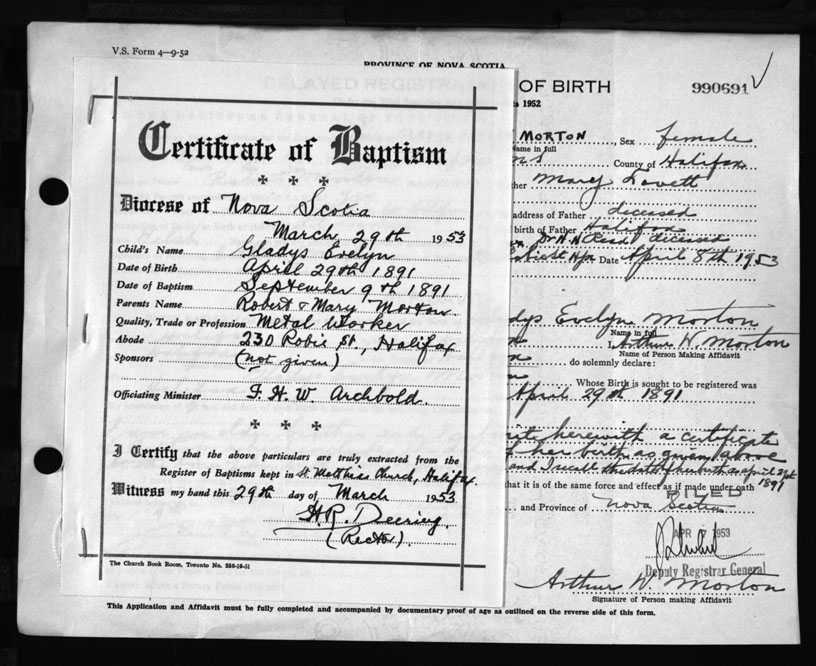 V.S. Form 4—9-52
PROVINCE OF NOVA SCOTIA
DELAYED REGISTRA
OF BIRTH
990691
1952
Certificate of Baptism
Diocese of Nova Scotia
March 29th 1953
Child's Name Gladys Evelyn
Date of Birth April 29th 1891
Date of Baptism September 9th 1891
Parents Name Robert & Mary Morton
Quality, Trade or Profession Metal Worker
Abode 230 Robie St., Halifax
Sponsors (not given)
Officiating Minister F. H. W. Archbold.
I Certify that the above particulars are truly extracted from the
Register of Baptisms kept in St. Matthias Church, Halifax.
Witness my hand this 29th day of March 1953
H.R. Deering.
(Rector).
The Church Book Room, Toronto No. 250-10-51
MORTON, Sex female
Name in full
County of Halifax
Mary Lovett
address of Father deceased
birth of Father Halifax
Dr. H. H. Read deceased
Date April 8th 1953
Gladys Evelyn Morton
Name in full
I, Arthur W. Morton
Name of Person Making Affidavit
do solemnly declare:
Whose Birth is sought to be registered was
April 29th 1891
herewith a certificate
of her birth as given above
and I recall the date of her birth as April 29th
1891
that it is of the same force and effect as if made under oath
FILED
and Province of Nova Scotia
APR 1953
Deputy Registrar General
Arthur W. Morton
Signature of Person making Affidavit
This Application and Affidavit must be fully completed and accompanied by documentary proof of age as outlined on the reverse side of this form.